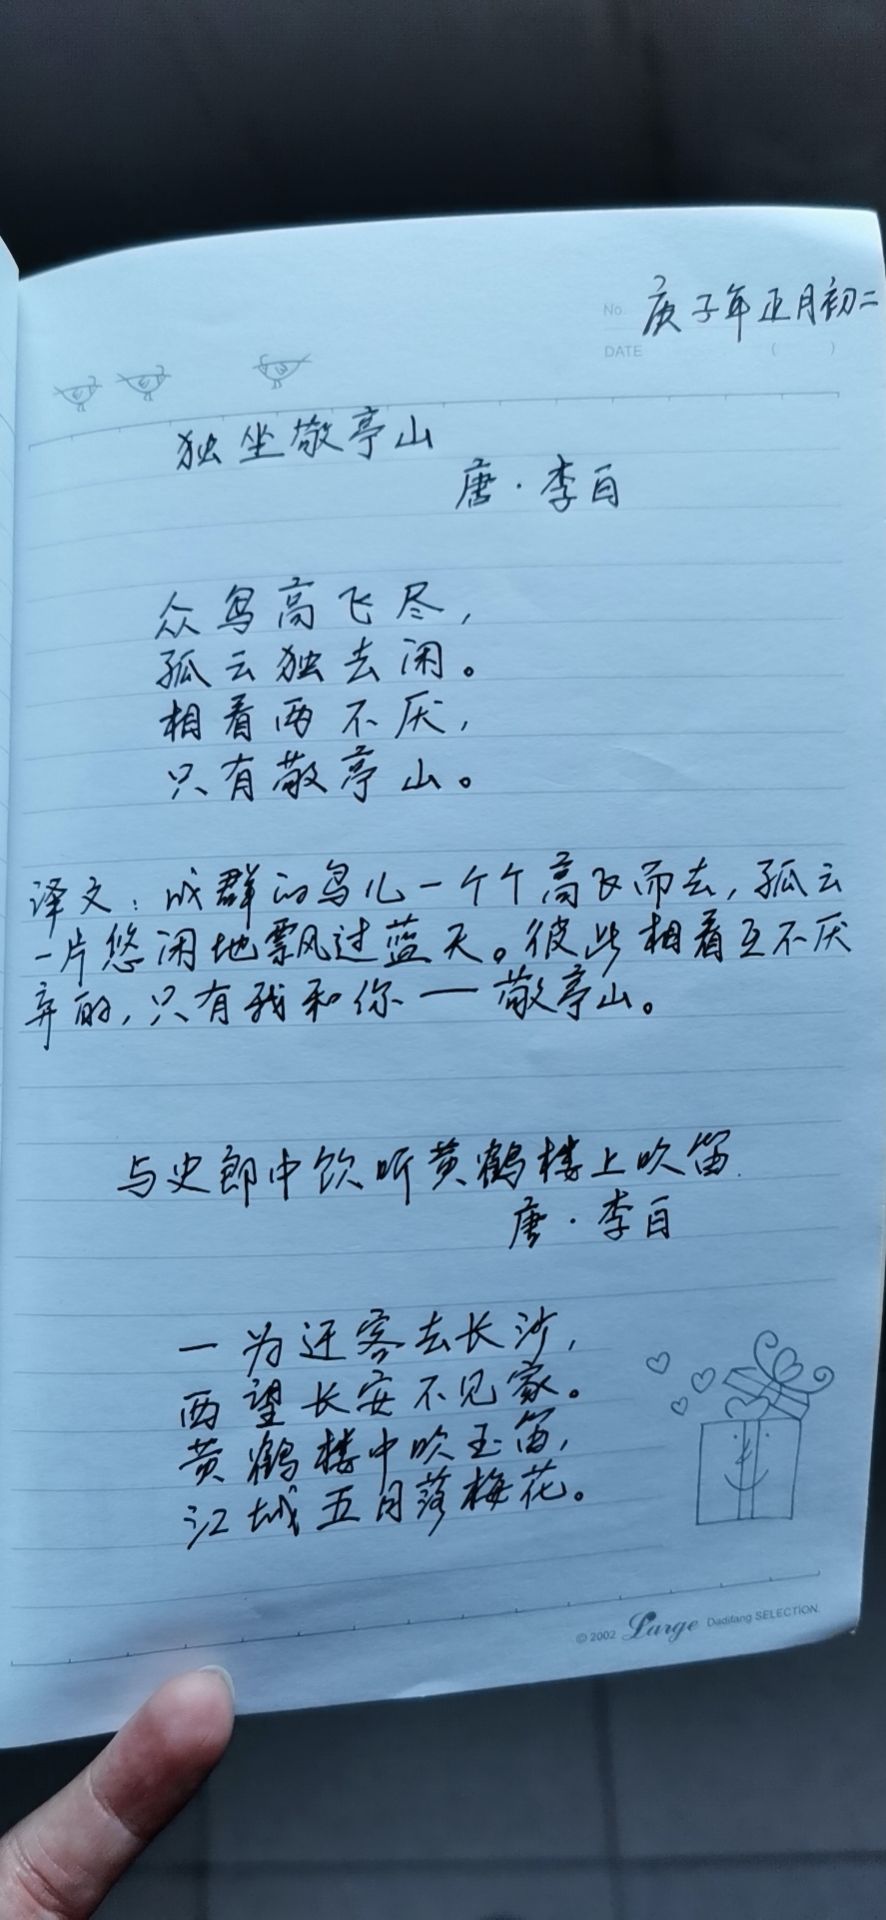 No. 庚子年正月初二
DATE ( )
独坐敬亭山
唐·李白
众鸟高飞尽，
孤云独去闲。
相看两不厌，
只有敬亭山。
译文：成群的鸟儿一个个高飞而去，孤云
一片悠闲地飘过蓝天。彼此相看互不厌
弃的，只有我和你——敬亭山。
与史郎中饮听黄鹤楼上吹笛
唐·李白
一为迁客去长沙，
西望长安不见家。
黄鹤楼中吹玉笛，
江城五月落梅花。
© 2002 Large Dadifang SELECTION.